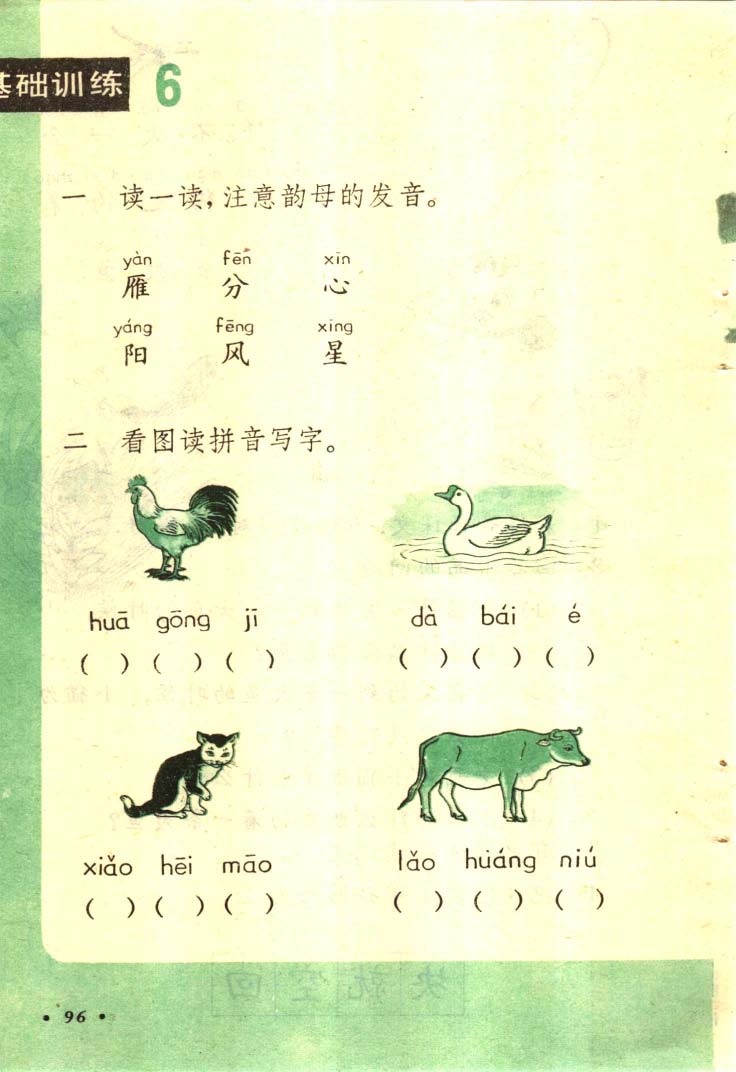 基础训练 6
一 读一读,注意韵母的发音。
yàn fēn xīn
雁 分 心
yáng fēng xīng
阳 风 星
二 看图读拼音写字。
huā gōng jī dà bái é
( ) ( ) ( ) ( ) ( ) ( )
xiǎo hēi māo lǎo huáng niú
( ) ( ) ( ) ( ) ( ) ( )
• 96 •